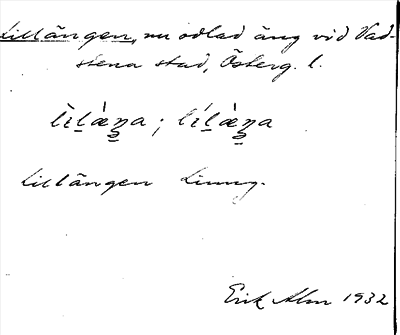 Lillängen, nu odlad äng vid Vad-
stena stad, Österg. l.
lìlæ̀ŋa ; lílæ̀ŋa
Lillängen
Erik Alm 1932